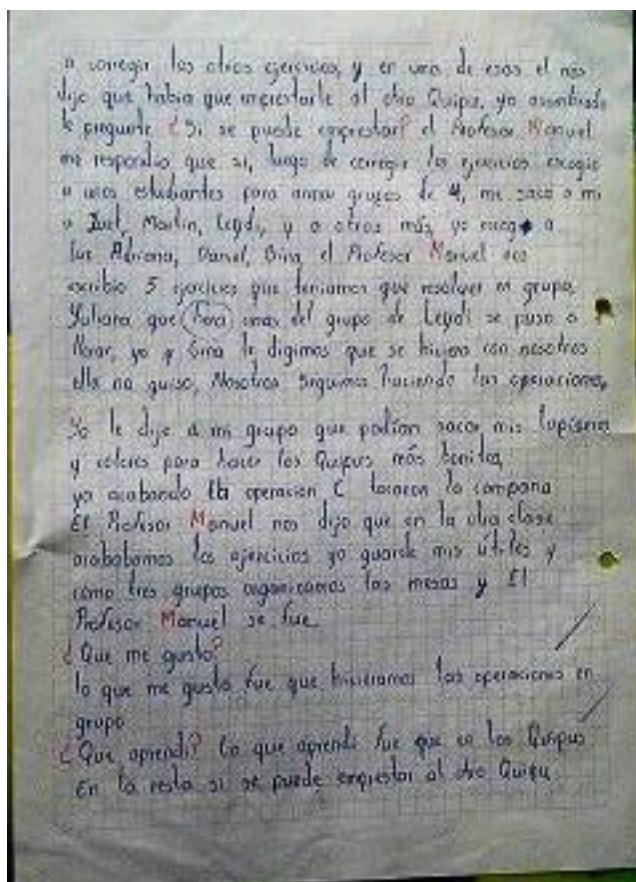 a corregir los otros ejercicios, y en una de esas el nos
dijo que habia que emprestarle al otro Quipu, yo asombrada
le pregunte ¿Si se puede emprestar? el Profesor Manuel
me respondio que si, luego de corregir los ejercicios escogio
a unos estudiantes para armar grupos de 4, me saco a mi
a Martin, Leydi, y a otros más, yo a
Adriana, Daniel, Gina, el Profesor Manuel nos
escribio 5 ejercicios que teniamos que resolver en grupo,
Yuliana que era del grupo de Leydi se puso a
llorar, yo y Gina le digimos que se hiciera con nosotros
ella no quiso, Nosotros seguimos haciendo las operaciones,
Yo le dije a mi grupo que podian sacar mis lapiseros
y colores para hacer los Quipus más bonitos,
ya acabando la operacion C tocaron la campana
El Profesor Manuel nos dijo que en la otra clase
acababamos los ejercicios yo guarde mis útiles y
como tres grupos organizamos las mesas y El
Profesor Manuel se fue.
¿Que me gusto?
lo que me gusto fue que hicieramos las operaciones en
grupo
¿Que aprendi? Lo que aprendi fue que en los Quipus
En la resta si se puede emprestar al otro Quipu